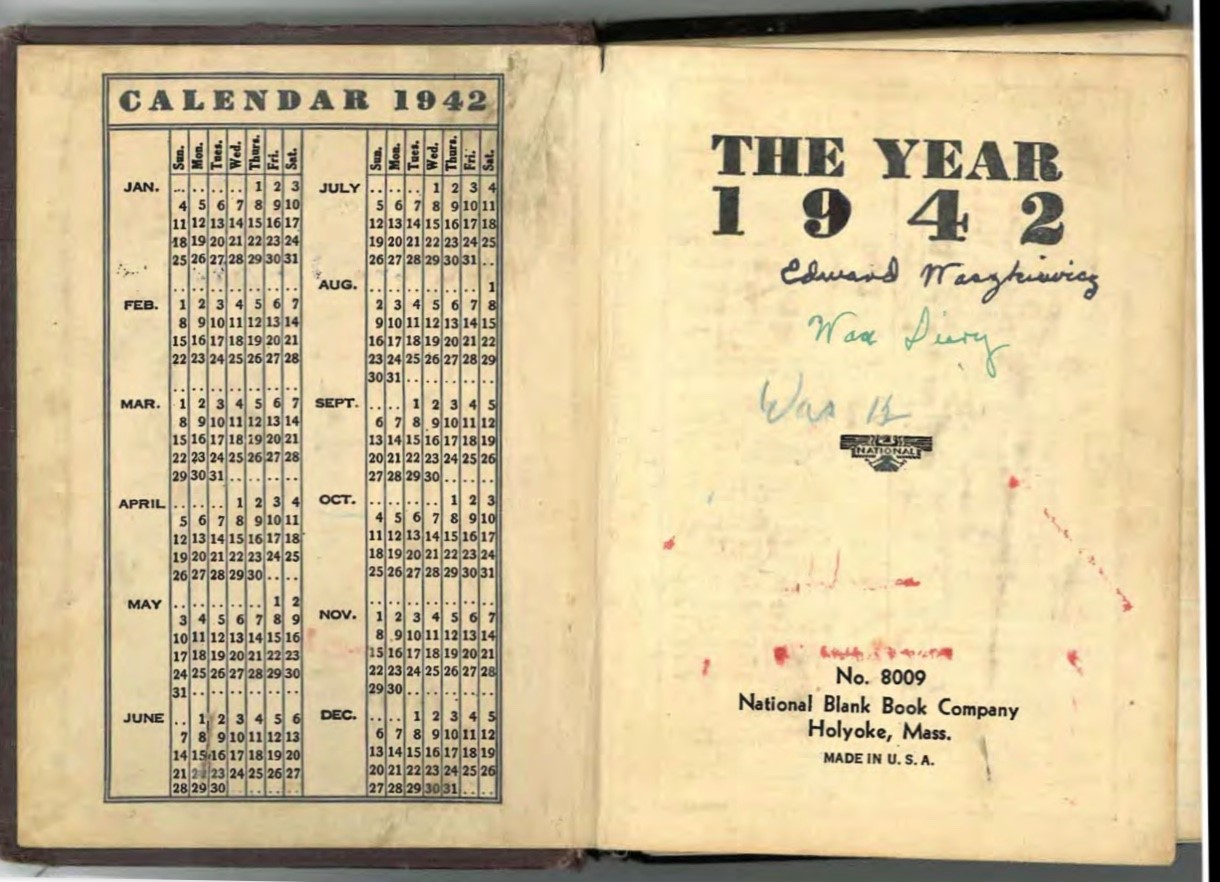 CALENDAR 1942
Sun. Mon. Tues. Wed. Thurs. Fri. Sat.
JAN. ... .. .. .. 1 2 3
4 5 6 7 8 9 10
11 12 13 14 15 16 17
18 19 20 21 22 23 24
25 26 27 28 29 30 31
FEB. 1 2 3 4 5 6 7
8 9 10 11 12 13 14
15 16 17 18 19 20 21
22 23 24 25 26 27 28
MAR. 1 2 3 4 5 6 7
8 9 10 11 12 13 14
15 16 17 18 19 20 21
22 23 24 25 26 27 28
29 30 31 .. .. .. ..
APRIL .. .. .. 1 2 3 4
5 6 7 8 9 10 11
12 13 14 15 16 17 18
19 20 21 22 23 24 25
26 27 28 29 30 .. ..
MAY .. .. .. .. .. 1 2
3 4 5 6 7 8 9
10 11 12 13 14 15 16
17 18 19 20 21 22 23
24 25 26 27 28 29 30
31 .. .. .. .. .. ..
JUNE .. 1 2 3 4 5 6
7 8 9 10 11 12 13
14 15 16 17 18 19 20
21 22 23 24 25 26 27
28 29 30 .. .. .. ..
Sun. Mon. Tues. Wed. Thurs. Fri. Sat.
JULY .. .. .. 1 2 3 4
5 6 7 8 9 10 11
12 13 14 15 16 17 18
19 20 21 22 23 24 25
26 27 28 29 30 31 ..
AUG. .. .. .. .. .. .. 1
2 3 4 5 6 7 8
9 10 11 12 13 14 15
16 17 18 19 20 21 22
23 24 25 26 27 28 29
30 31 .. .. .. .. ..
SEPT. .. .. 1 2 3 4 5
6 7 8 9 10 11 12
13 14 15 16 17 18 19
20 21 22 23 24 25 26
27 28 29 30 .. .. ..
OCT. .. .. .. .. 1 2 3
4 5 6 7 8 9 10
11 12 13 14 15 16 17
18 19 20 21 22 23 24
25 26 27 28 29 30 31
NOV. 1 2 3 4 5 6 7
8 9 10 11 12 13 14
15 16 17 18 19 20 21
22 23 24 25 26 27 28
29 30 .. .. .. .. ..
DEC. .. .. 1 2 3 4 5
6 7 8 9 10 11 12
13 14 15 16 17 18 19
20 21 22 23 24 25 26
27 28 29 30 31 .. ..
THE YEAR
1942
Edward Waszkiewicz
War Diary
NATIONAL
No. 8009
National Blank Book Company
Holyoke, Mass.
MADE IN U. S. A.